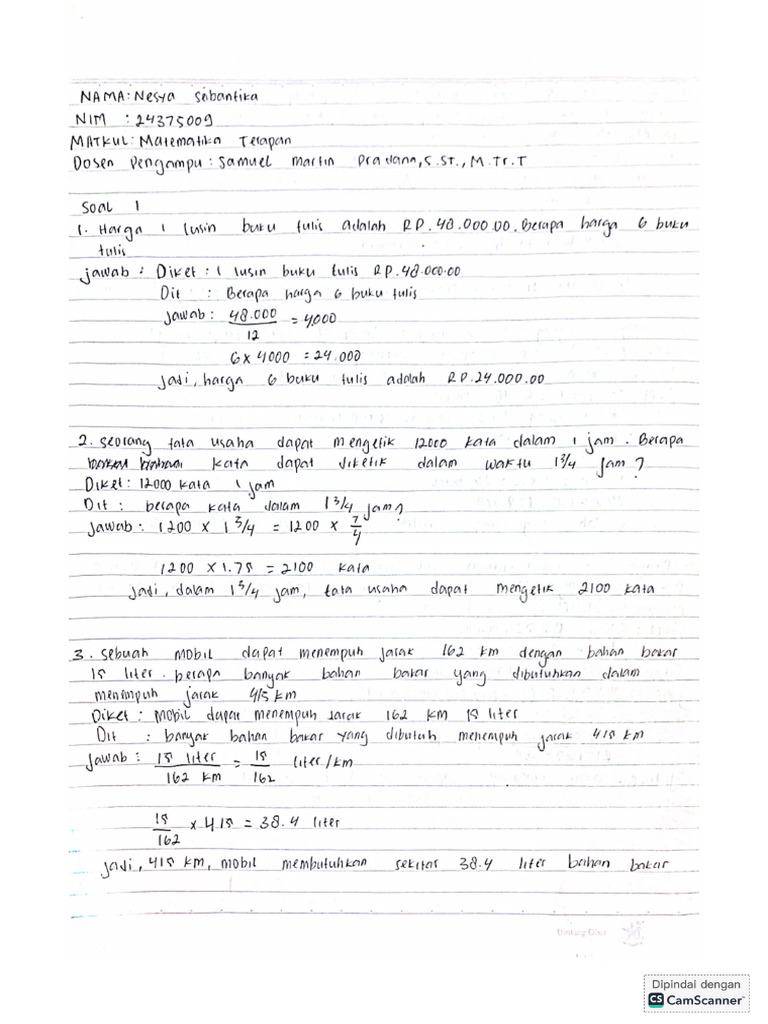 NAMA: Nesya Sebantika
NIM : 24375009
MATKUL: Matematika Terapan
Dosen Pengampu: Samuel Martin Pradana, S.ST., M.Tr.T
Soal 1
1. Harga 1 lusin buku tulis adalah RP. 48.000.00. Berapa harga 6 buku
tulis
Jawab : Diket : 1 lusin buku tulis RP.48.000.00
Dit : Berapa harga 6 buku tulis
Jawab : 48.000/12 = 4000
6 x 4000 = 24.000
Jadi, harga 6 buku tulis adalah RP.24.000.00
2. Seorang tata usaha dapat mengetik 12000 kata dalam 1 jam. Berapa
kata dapat diketik dalam waktu 1 3/4 jam?
Diket : 12000 kata 1 jam
Dit : berapa kata dalam 1 3/4 jam?
Jawab : 1200 x 1 3/4 = 1200 x 7/4
1200 x 1.75 = 2100 kata
Jadi, dalam 1 3/4 jam, tata usaha dapat mengetik 2100 kata
3. Sebuah mobil dapat menempuh jarak 162 km dengan bahan bakar
15 liter. berapa banyak bahan bakar yang dibutuhkan dalam
menempuh jarak 415 km
Diket : Mobil dapat menempuh jarak 162 km 15 liter
Dit : banyak bahan bakar yang dibutuh menempuh jarak 415 km
Jawab : 15 liter/162 km = 15/162 liter/km
15/162 x 415 = 38.4 liter
Jadi, 415 km, mobil membutuhkan sekitar 38.4 liter bahan bakar
Dipindai dengan
CS CamScanner